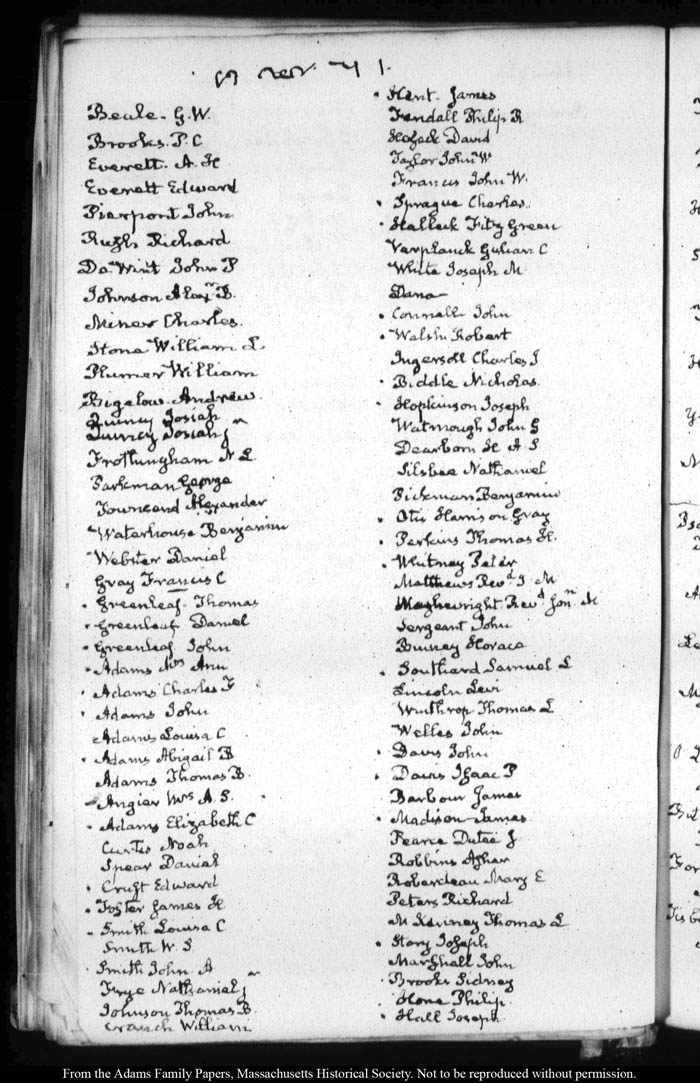 Beale. G. W.
Brooks. P. C
Everett. A. H
Everett Edward
Pierpont John
Rush Richard
De Wint John P
Johnson Alexr. B.
Miner Charles.
Stone William L
Plumer William
Bigelow Andrew
Quincy Josiah
Quincy Josiah jn
Frothingham N L
Parkman George
Townsend Alexander
Waterhouse Benjamin
Webster Daniel
Gray Francis C
Greenleaf. Thomas
Greenleaf Daniel
Greenleaf John
Adams Mrs Ann
Adams Charles F
Adams John
Adams Louisa C
Adams Abigail B
Adams Thomas B.
Angier Mrs A. S.
Adams Elizabeth C
Curtis Noah
Spear Daniel
Cruft Edward
Foster James H
Smith Louisa C
Smith W. S
Smith John A
Frye Nathaniel jn
Johnson Thomas B.
Cranch William
Kent. James
Fendall Philip R
Hosack David
Taylor John W
Francis John W.
Sprague Charles.
Halleck Fitz Green
Verplanck Gulian C
White Joseph M
Dana
Connell John
Walsh Robert
Ingersoll Charles J
Biddle Nicholas.
Hopkinson Joseph
Watmough John G
Dearborn H A S
Silsbee Nathaniel
Pickman Benjamin
Otis Harrison Gray
Perkins Thomas H.
Whitney Peter
Matthews Revd. J. M
Wainwright Revd Jonn. M
Sergeant John
Binney Horace
Southard Samuel L
Lincoln Levi
Winthrop Thomas L
Welles John
Davis John
Davis Isaac P
Barbour James
Madison James.
Pearce Dutee J
Robbins Asher
Roberdeau Mary E
Peters Richard
McKenney Thomas L
Story Joseph
Marshall John
Brooks Sidney
Hone Philip.
Hall Joseph
From the Adams Family Papers, Massachusetts Historical Society. Not to be reproduced without permission.